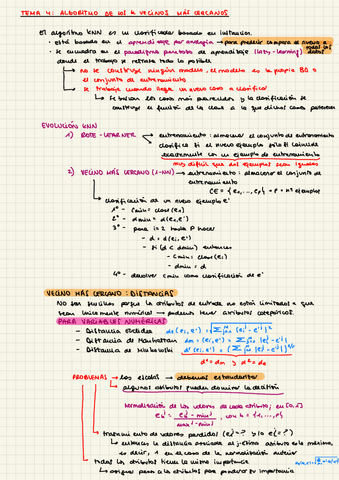 TEMA 4: ALGORITMO DE LOS K VECINOS MÁS CERCANOS
El algoritmo KNN es un clasificador basado en instancias
· está basado en el aprendizaje por analogía → para predecir compara el nuevo a todos los datos
Se encuadra en el paradigma perezoso de aprendizaje (lazy-learning)
donde el trabajo se retrasa todo lo posible
→ no se construye ningún modelo, el modelo es la propia BD o
el conjunto de entrenamiento
→ se trabaja cuando llega un nuevo caso a clasificar
↳ Se buscan los casos más parecidos y la clasificación se
construye en función de la clase a la que dichos casos pertenecen
EVOLUCIÓN KNN
1) ROTE-LEARNER → entrenamiento: almacenar el conjunto de entrenamiento
clasifica si el nuevo ejemplo sólo si coincide
exactamente con un ejemplo de entrenamiento
↳ muy difícil que dos ejemplos sean iguales
2) VECINO MÁS CERCANO (1-NN) → entrenamiento: almacena el conjunto de
entrenamiento
CE = {e₁, ..., eₚ} → p = nº ejemplos
↳ clasificación de un nuevo ejemplo e'
1º - cmin = clase(e₁)
2º - dmin = d(e₁, e')
3º - para i=2 hasta P hacer
- d = d(eᵢ, e')
- Si (d < dmin) entonces
- cmin = clase(eᵢ)
- dmin = d
4º - devolver cmin como clasificación de e'
VECINO MÁS CERCANO: DISTANCIAS
No son sencillas porque los atributos de entrada no están limitados a que
sean únicamente numéricos → podemos tener atributos categóricos.
PARA VARIABLES NUMÉRICAS
- Distancia Euclídea
- Distancia de Manhattan
- Distancia de Minkowski
PROBLEMAS → las escalas → debemos estandarizar
↳ algunos atributos pueden dominar la decisión
Normalización de los valores de cada atributo, en [0,1]
→ tratamiento de valores perdidos
↳ entonces la distancia asociada al j-ésimo atributo es la máxima,
es decir, 1 en el caso de la normalización anterior
→ todos los atributos tienen la misma importancia
↳ asignar pesos a los atributos para ponderar su importancia